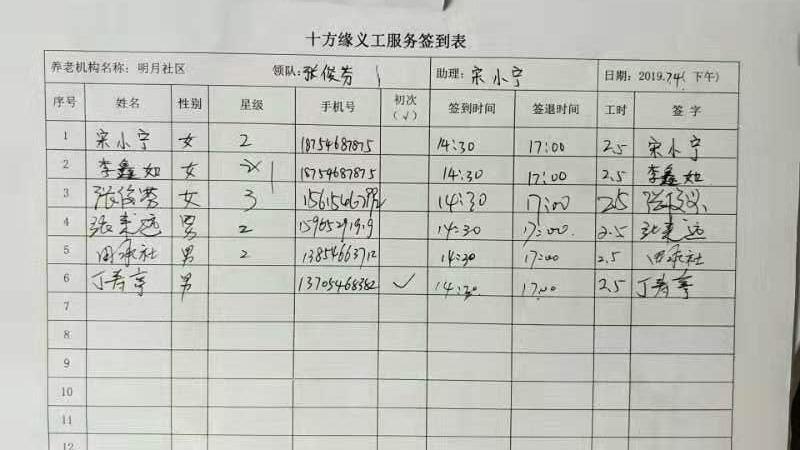 十方缘义工服务签到表
养老机构名称：明月社区 领队：张俊芳 助理：宋小宁 日期：2019.7.4（下午）
序号 姓名 性别 星级 手机号 初次（√） 签到时间 签退时间 工时 签字
1 宋小宁 女 2 18754687875 14:30 17:00 2.5 宋小宁
2 李鑫如 女 1 18754687875 14:30 17:00 2.5 李鑫如
3 张俊芳 女 3 14:30 17:00 2.5
4 男 2 15965291919 14:30 17:00 2.5
5 田承社 男 2 13854663712 14:30 17:00 2.5 田承社
6 丁寿亭 男 13705468382 √ 14:30 17:00 2.5 丁寿亭
7
8
9
10
11
12